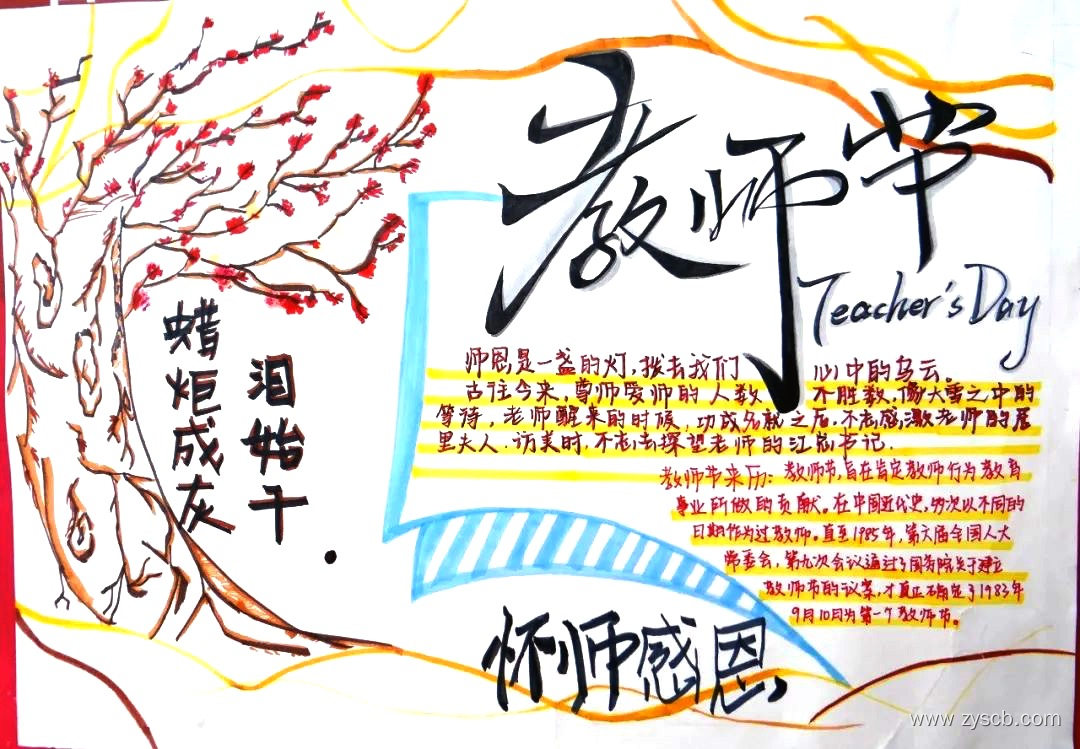 教师节
Teacher's Day
蜡炬成灰
泪始干
师恩是一盏的灯,拨去我们 心中的乌云。
古往今来,尊师爱师的人数 不胜数,像大雪之中的
等待,老师醒来的时候,功成名就之后,不忘感激老师的居
里夫人,访美时,不忘去探望老师的江总书记.
教师节来历:教师节,旨在肯定教师行为教育
事业所做的贡献。在中国近代史,多次以不同的
日期作为过教师。直至1985年,第六届全国人大
常委会,第九次会议通过了国务院关于建立
教师节的议案,才真正不确定了1983年
9月10日为第一个教师节。
怀师感恩
www.zyscb.com